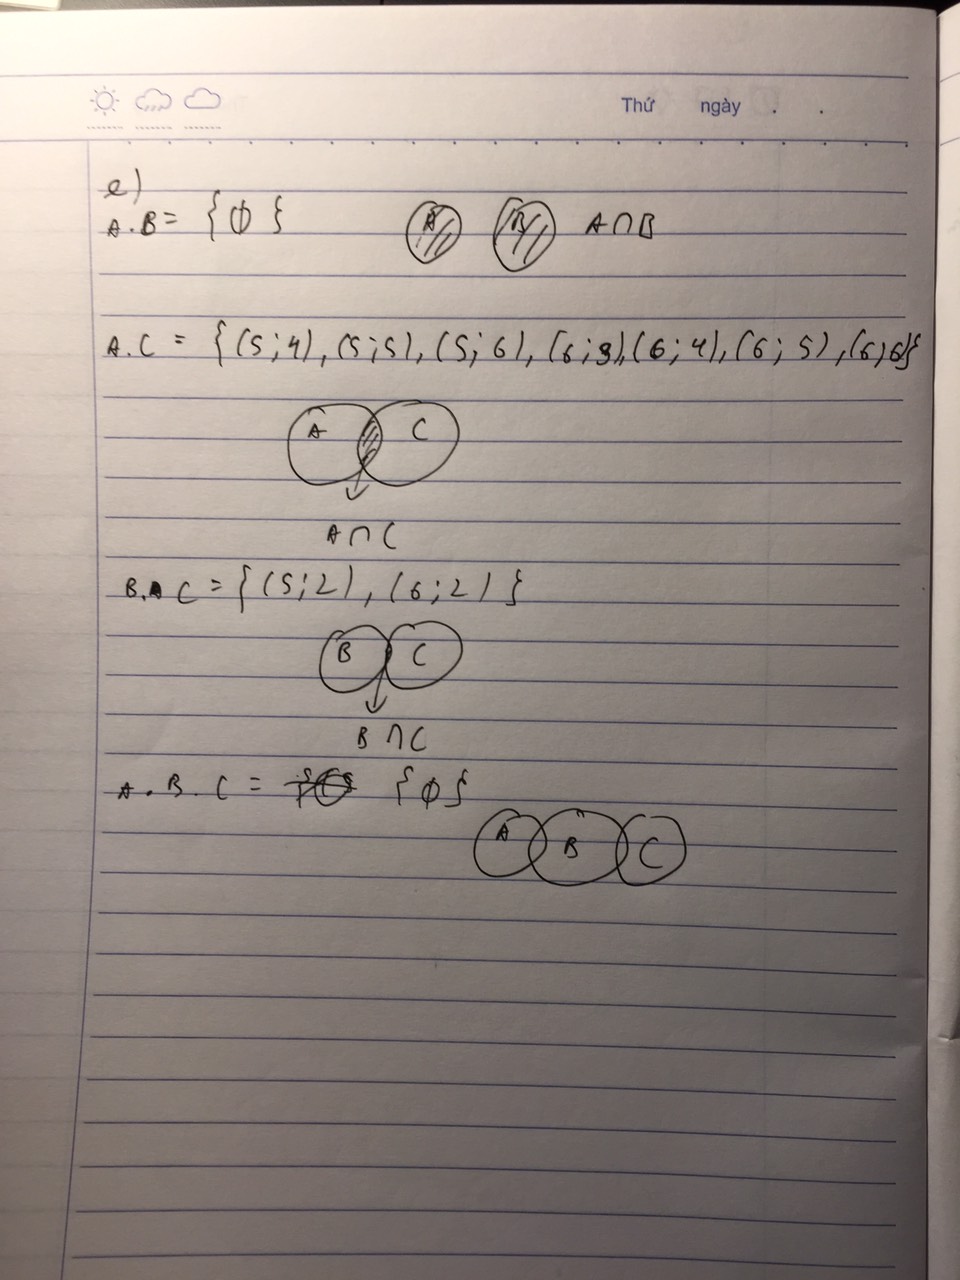 Thứ ngày . .
e)
A.B = {∅} A B A∩B
A.C = {(5;4),(5;5),(5;6),(6;3),(6;4),(6;5),(6;6)}
A C
A∩C
B.C = {(5;2),(6;2)}
B C
B∩C
A.B.C = {∅}
A B C